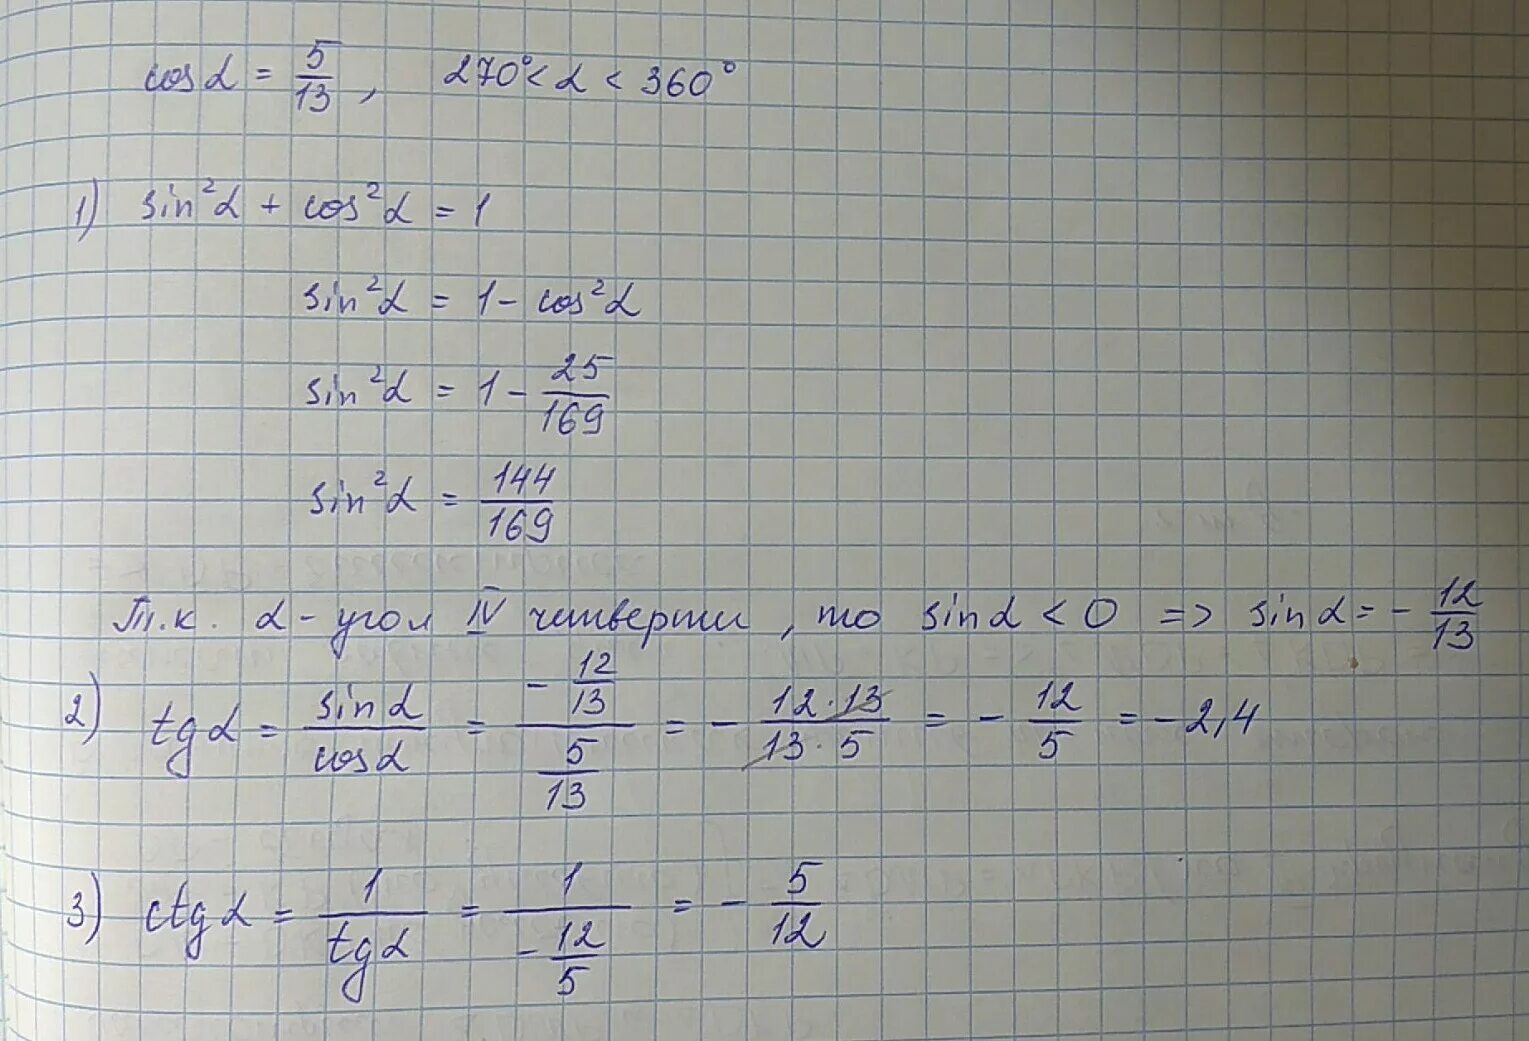 cos α = 5/13 , 270° < α < 360°
1) sin²α + cos²α = 1
sin²α = 1 - cos²α
sin²α = 1 - 25/169
sin²α = 144/169
Т.к. α - угол IV четверти , то sin α < 0 => sin α = - 12/13
2) tg α = sin α/cos α = (- 12/13)/(5/13) = - (12·13)/(13·5) = - 12/5 = -2,4
3) ctg α = 1/tg α = 1/(- 12/5) = - 5/12